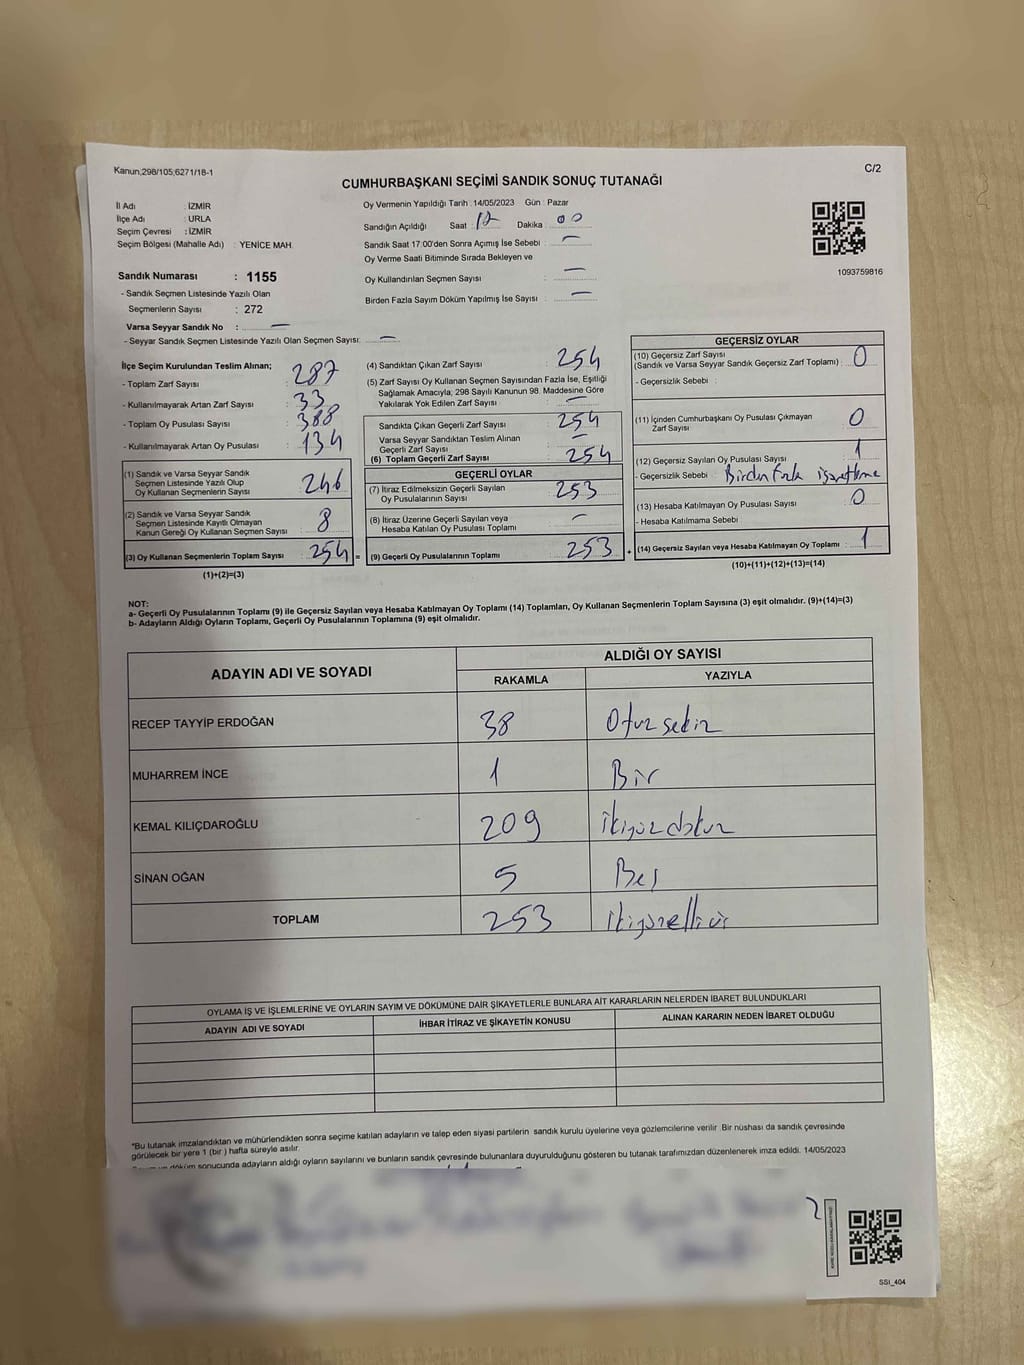 Kanun;298/105;6271/18-1
C/2
CUMHURBAŞKANI SEÇİMİ SANDIK SONUÇ TUTANAĞI
İl Adı : İZMİR
İlçe Adı : URLA
Seçim Çevresi : İZMİR
Seçim Bölgesi (Mahalle Adı) : YENİCE MAH.
Oy Vermenin Yapıldığı Tarih : 14/05/2023 Gün : Pazar
Sandığın Açıldığı Saat : 17 Dakika : 00
Sandık Saat 17:00'den Sonra Açımış İse Sebebi : —
Oy Verme Saati Bitiminde Sırada Bekleyen ve
Oy Kullandırılan Seçmen Sayısı : —
Birden Fazla Sayım Döküm Yapılmış İse Sayısı : —
1093759816
Sandık Numarası : 1155
- Sandık Seçmen Listesinde Yazılı Olan
Seçmenlerin Sayısı : 272
Varsa Seyyar Sandık No : —
- Seyyar Sandık Seçmen Listesinde Yazılı Olan Seçmen Sayısı: —
İlçe Seçim Kurulundan Teslim Alınan;
- Toplam Zarf Sayısı : 287
- Kullanılmayarak Artan Zarf Sayısı : 33
- Toplam Oy Pusulası Sayısı : 388
- Kullanılmayarak Artan Oy Pusulası : 134
(1) Sandık ve Varsa Seyyar Sandık
Seçmen Listesinde Yazılı Olup
Oy Kullanan Seçmenlerin Sayısı : 246
(2) Sandık ve Varsa Seyyar Sandık
Seçmen Listesinde Kayıtlı Olmayan
Kanun Gereği Oy Kullanan Seçmen Sayısı : 8
(3) Oy Kullanan Seçmenlerin Toplam Sayısı : 254 =
(1)+(2)=(3)
(4) Sandıktan Çıkan Zarf Sayısı : 254
(5) Zarf Sayısı Oy Kullanan Seçmen Sayısından Fazla İse, Eşitliği
Sağlamak Amacıyla; 298 Sayılı Kanunun 98. Maddesine Göre
Yakılarak Yok Edilen Zarf Sayısı : —
Sandıkta Çıkan Geçerli Zarf Sayısı : 254
Varsa Seyyar Sandıktan Teslim Alınan
Geçerli Zarf Sayısı : —
(6) Toplam Geçerli Zarf Sayısı : 254
GEÇERLİ OYLAR
(7) İtiraz Edilmeksizin Geçerli Sayılan
Oy Pusulalarının Sayısı : 253
(8) İtiraz Üzerine Geçerli Sayılan veya
Hesaba Katılan Oy Pusulası Toplamı : —
(9) Geçerli Oy Pusulalarının Toplamı : 253 +
GEÇERSİZ OYLAR
(10) Geçersiz Zarf Sayısı
(Sandık ve Varsa Seyyar Sandık Geçersiz Zarf Toplamı) : 0
- Geçersizlik Sebebi :
(11) İçinden Cumhurbaşkanı Oy Pusulası Çıkmayan
Zarf Sayısı : 0
(12) Geçersiz Sayılan Oy Pusulası Sayısı : 1
- Geçersizlik Sebebi : Birden fazla işaretleme
(13) Hesaba Katılmayan Oy Pusulası Sayısı : 0
- Hesaba Katılmama Sebebi
(14) Geçersiz Sayılan veya Hesaba Katılmayan Oy Toplamı : 1
(10)+(11)+(12)+(13)=(14)
NOT:
a- Geçerli Oy Pusulalarının Toplamı (9) ile Geçersiz Sayılan veya Hesaba Katılmayan Oy Toplamı (14) Toplamları, Oy Kullanan Seçmenlerin Toplam Sayısına (3) eşit olmalıdır. (9)+(14)=(3)
b- Adayların Aldığı Oyların Toplamı, Geçerli Oy Pusulalarının Toplamına (9) eşit olmalıdır.
ADAYIN ADI VE SOYADI ALDIĞI OY SAYISI
RAKAMLA YAZIYLA
RECEP TAYYİP ERDOĞAN 38 Otuz sekiz
MUHARREM İNCE 1 Bir
KEMAL KILIÇDAROĞLU 209 İkiyüz dokuz
SİNAN OĞAN 5 Beş
TOPLAM 253 İkiyüzelliüç
OYLAMA İŞ VE İŞLEMLERİNE VE OYLARIN SAYIM VE DÖKÜMÜNE DAİR ŞİKAYETLERLE BUNLARA AİT KARARLARIN NELERDEN İBARET BULUNDUKLARI
ADAYIN ADI VE SOYADI İHBAR İTİRAZ VE ŞİKAYETİN KONUSU ALINAN KARARIN NEDEN İBARET OLDUĞU
*Bu tutanak imzalandıktan ve mühürlendikten sonra seçime katılan adayların ve talep eden siyasi partilerin sandık kurulu üyelerine veya gözlemcilerine verilir .Bir nüshası da sandık çevresinde
görülecek bir yere 1 (bir ) hafta süreyle asılır.
döküm sonucunda adayların aldığı oyların sayılarını ve bunların sandık çevresinde bulunanlara duyurulduğunu gösteren bu tutanak tarafımızdan düzenlenerek imza edildi. 14/05/2023
SSI_404